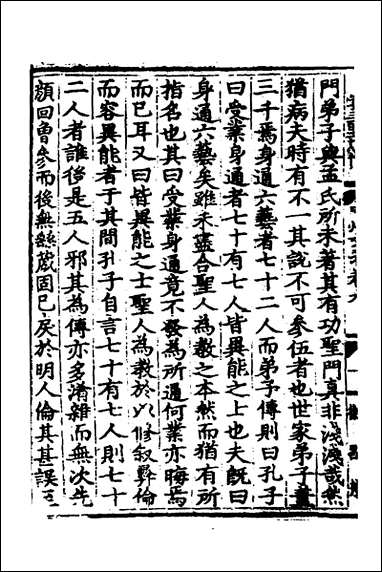 門弟子與孟氏所未著其有功聖門真非淺淺哉然
猶病夫時有不一其說不可參伍者也世家弟子蓋
三千焉身通六藝者七十二人而弟子傳則曰孔子
曰受業身通者七十有七人皆異能之士也夫旣曰
身通六藝矣雖未盡合聖人為教之本然而猶有所
指名也其曰受業身通竟不發為所通何業亦晦焉
而已耳又曰皆異能之士聖人為教於以修叙彝倫
而容異能者于其間孔子自言七十有七人則七十
二人者誰後是五人邪其為傳亦多淆雜而無次先
顏回曾參而後無繇蒧固已戾於明人倫其甚誤至